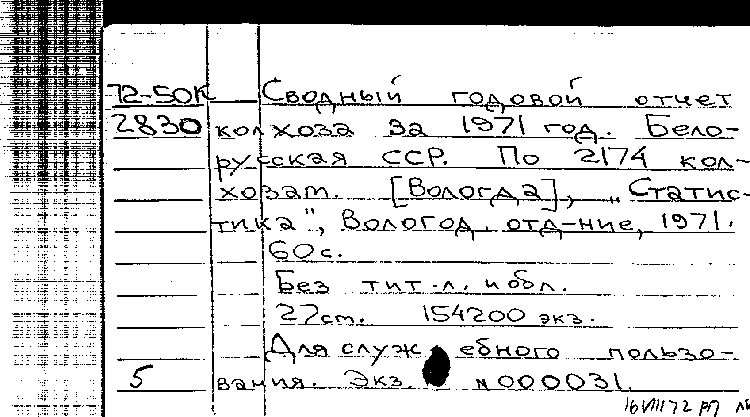 72-50К Сводный годовой отчет
2830 колхоза за 1971 год. Бело-
русская ССР. По 2174 кол-
хозам. [Вологда], „Статис-
тика", Вологод. отд-ние, 1971.
60с.
Без тит. л. и обл.
27см. 154200 экз.
Для служебного пользо-
5 вания. Экз. №000031.
16 VIII 72